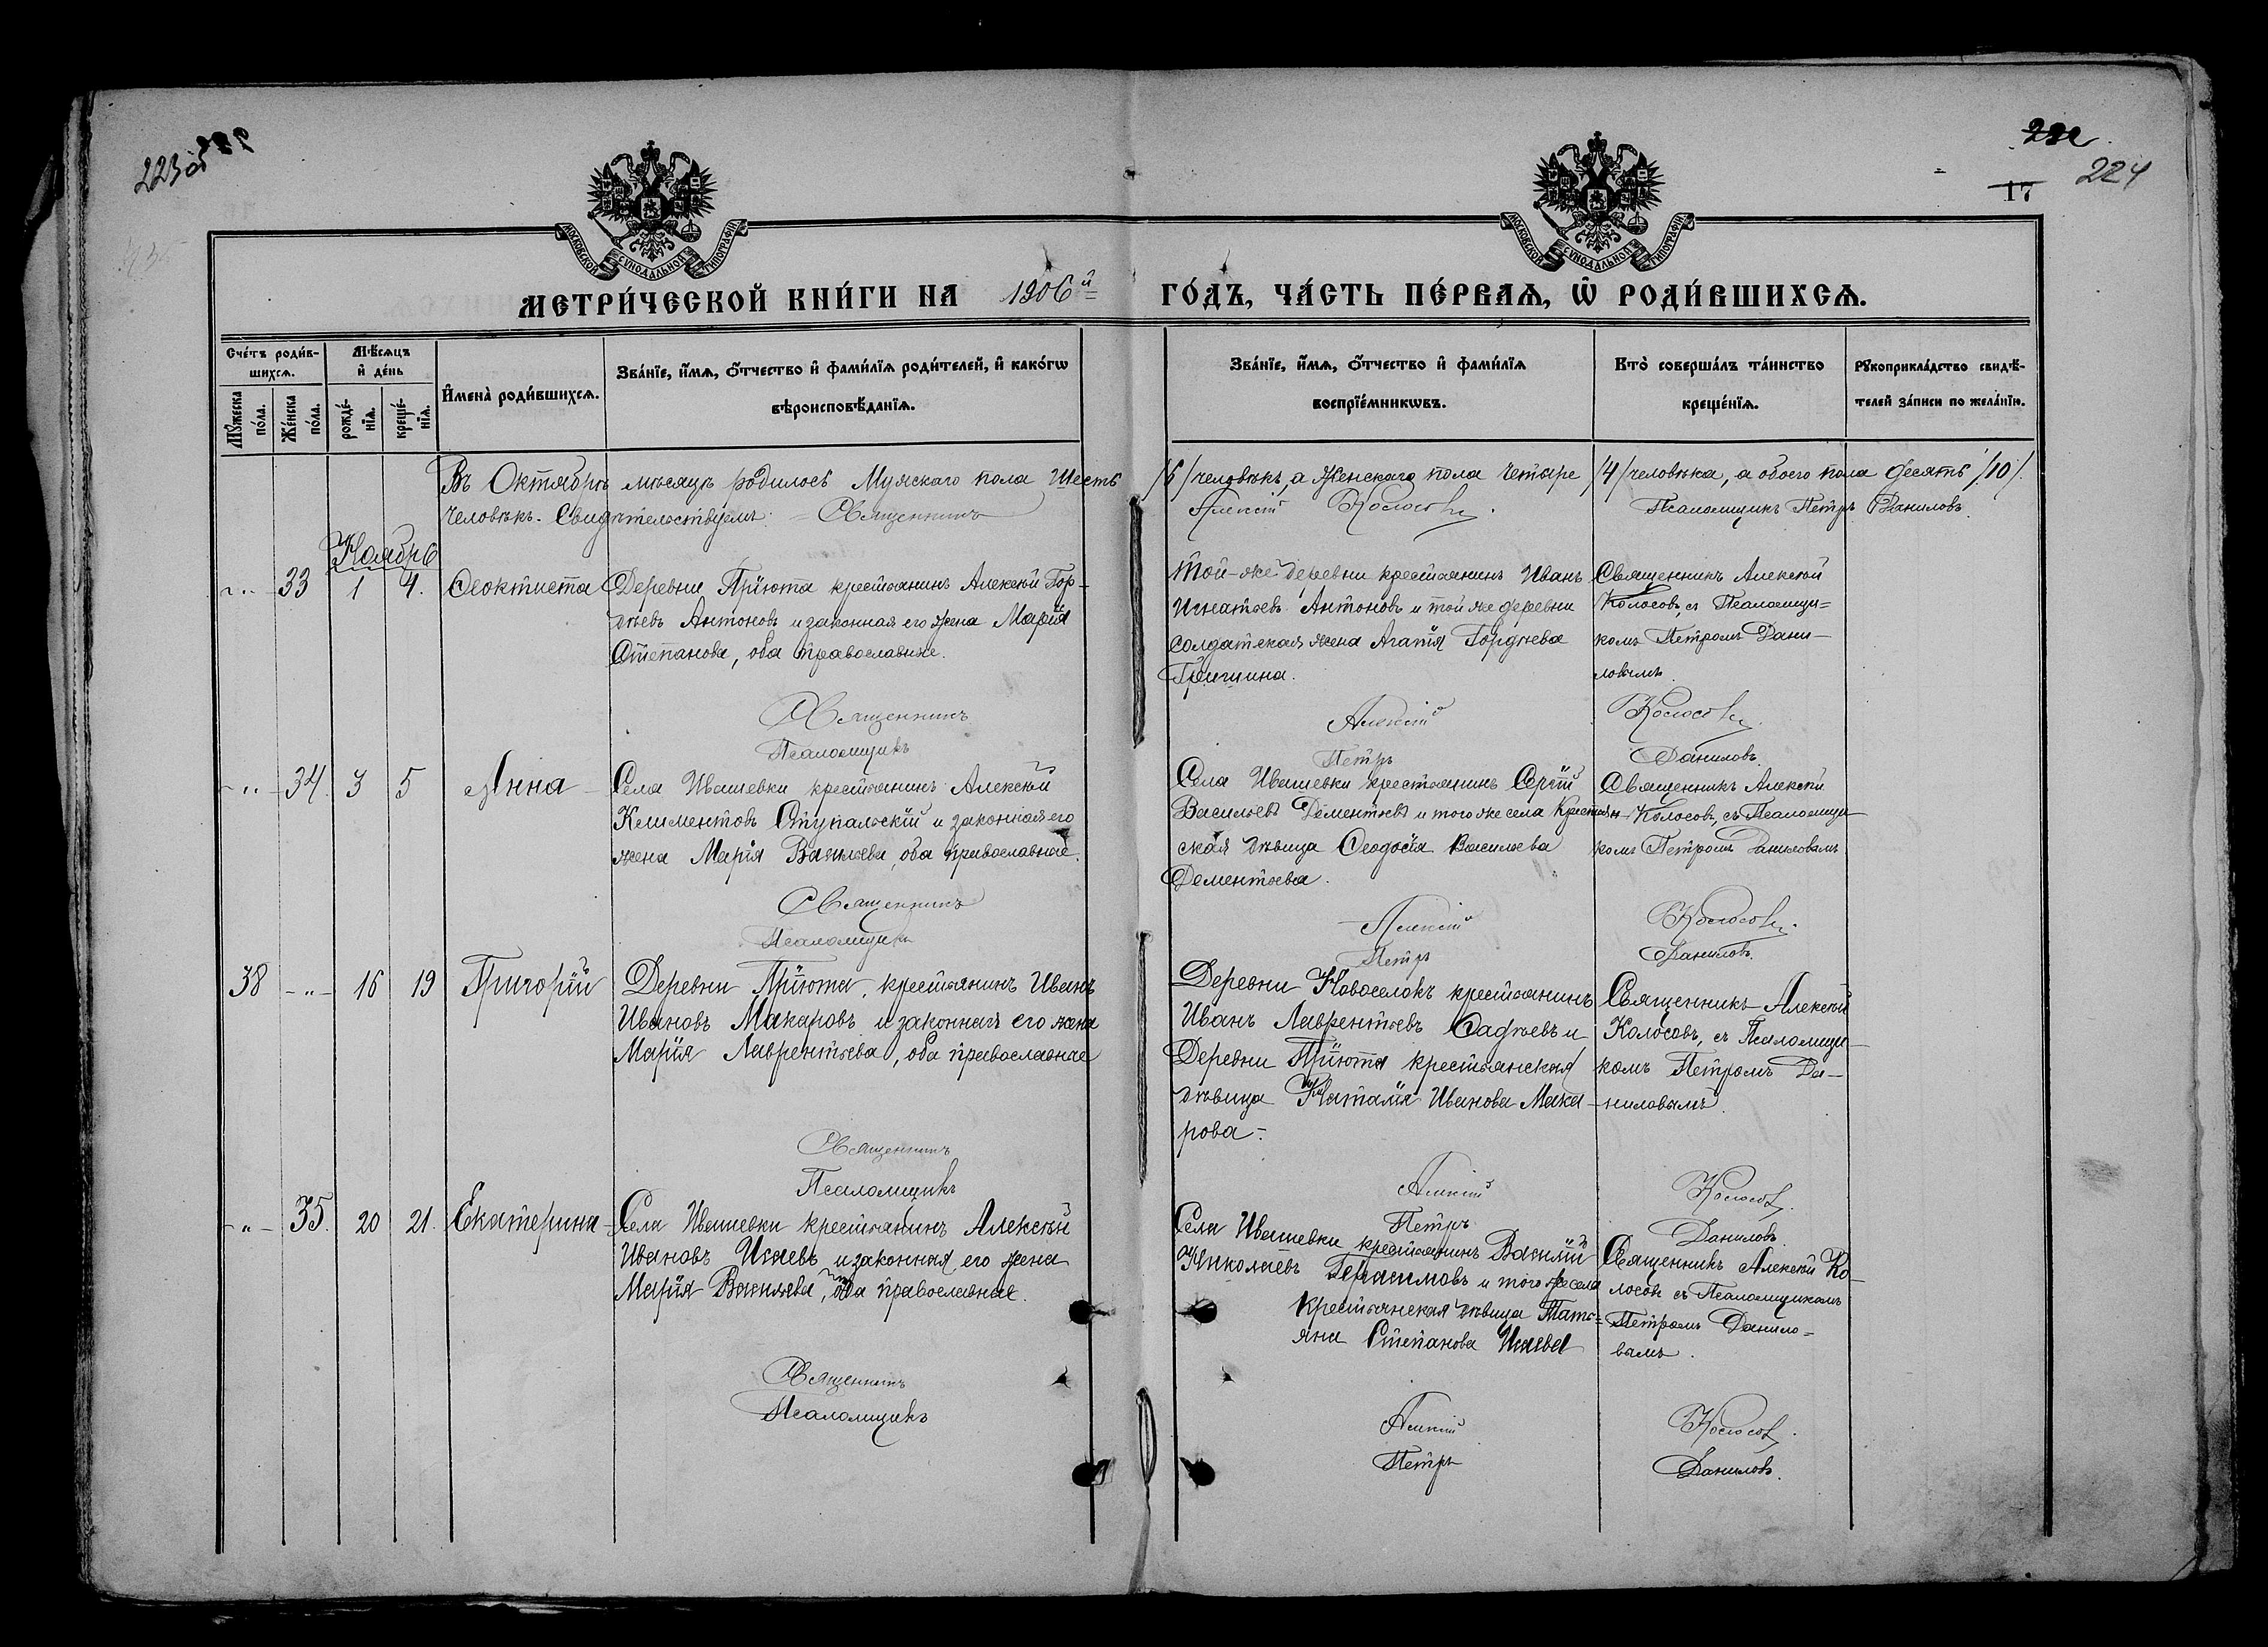 223 об
224
17
МОСКОВСКОЙ СѴНОДАЛЬНОЙ ТИПОГРАФІИ
МОСКОВСКОЙ СѴНОДАЛЬНОЙ ТИПОГРАФІИ
МЕТРИ́ЧЕСКОЙ КНИ́ГИ НА 1906й ГО́ДЪ, ЧА́СТЬ ПЕ́РВАѦ, Ѡ҆ РОДИ́ВШИХСѦ.
Сче́тъ роди́в-
шихсѧ.
Мꙋ́жеска по́ла.
Же́нска по́ла.
Мѣ́сѧцъ
и҆ де́нь
рожде́-
нїѧ.
креще́-
нїѧ.
И҆мена̀ роди́вшихсѧ.
Зва́нїе, и҆́мѧ, ѻ҆́тчество и҆ фами́лїѧ роди́телей, и҆ како́гѡ
вѣроисповѣ́данїѧ.
Зва́нїе, и҆́мѧ, ѻ҆́тчество и҆ фами́лїѧ
воспрїе́мникѡвъ.
Кто̀ соверша́лъ та́инство
креще́нїѧ.
Рꙋкоприкла́дство свидѣ́-
телей за́писи по жела́нїю.
Въ Октябрѣ мѣсяцѣ родилось Мужскаго пола Шесть /6/ человѣкъ, а Женскаго пола Четыре /4/ человѣка, а обоего пола десять /10/.
человѣкъ. Свидѣтельствуемъ: Священникъ Алексій Колосовъ. Псаломщикъ Петръ Даниловъ.
Ноябрь
-"- 33 1 4. Ѳеоктиста
Деревни Пріюта крестьянинъ Алексѣй Гор-
дѣевъ Антоновъ и законная его жена Марія
Степанова, оба православные.
Той-же деревни крестьянинъ Иванъ
Игнатьевъ Антоновъ и той же деревни
солдатская жена Агапія Гордѣева
Гришина.
Священникъ Алексѣй
Колосовъ, съ Псаломщи=
комъ Петромъ Дани-
ловымъ.
Священникъ Алексій Колосовъ.
Псаломщикъ Петръ Даниловъ.
-"- 34. 3 5 Анна
Села Ивашевки крестьянинъ Алексѣй
Климентовъ Ступальскій и законная его
жена Марія Васильева, оба православные.
Села Ивашевки крестьянинъ Сергій
Васильевъ Дементьевъ и того же села Крестьян-
ская дѣвица Ѳеодосія Васильева
Дементьева.
Священникъ Алексѣй
Колосовъ, съ Псаломщи-
комъ Петромъ Даниловымъ
Священникъ Алексій Колосовъ.
Псаломщикъ Петръ Даниловъ.
38 -"- 16 19 Григорій
Деревни Пріюта, крестьянинъ Иванъ
Ивановъ Макаровъ и законная его жена
Марія Лаврентьева, оба православные
Деревни Новоселокъ крестьянинъ
Иванъ Лаврентьевъ Садѣевъ и
Деревни Пріюта крестьянская
дѣвица Наталія Иванова Мака-
рова.
Священникъ Алексѣй
Колосовъ, съ Псаломщи-
комъ Петромъ Да-
ниловымъ.
Священникъ Алексій Колосовъ.
Псаломщикъ Петръ Даниловъ.
-"- 35. 20 21. Екатерина
Села Ивашевки крестьянинъ Алексѣй
Ивановъ Исаевъ и законная его жена
Марія Васильева, оба православные.
Села Ивашевки крестьянинъ Василій
Николаевъ Герасимовъ и того же села
крестьянская дѣвица Тать=
яна Степанова Исаева
Священникъ Алексѣй Ко-
лосовъ съ Псаломщикомъ
Петромъ Данило=
вымъ.
Священникъ Алексій Колосовъ.
Псаломщикъ Петръ Даниловъ.